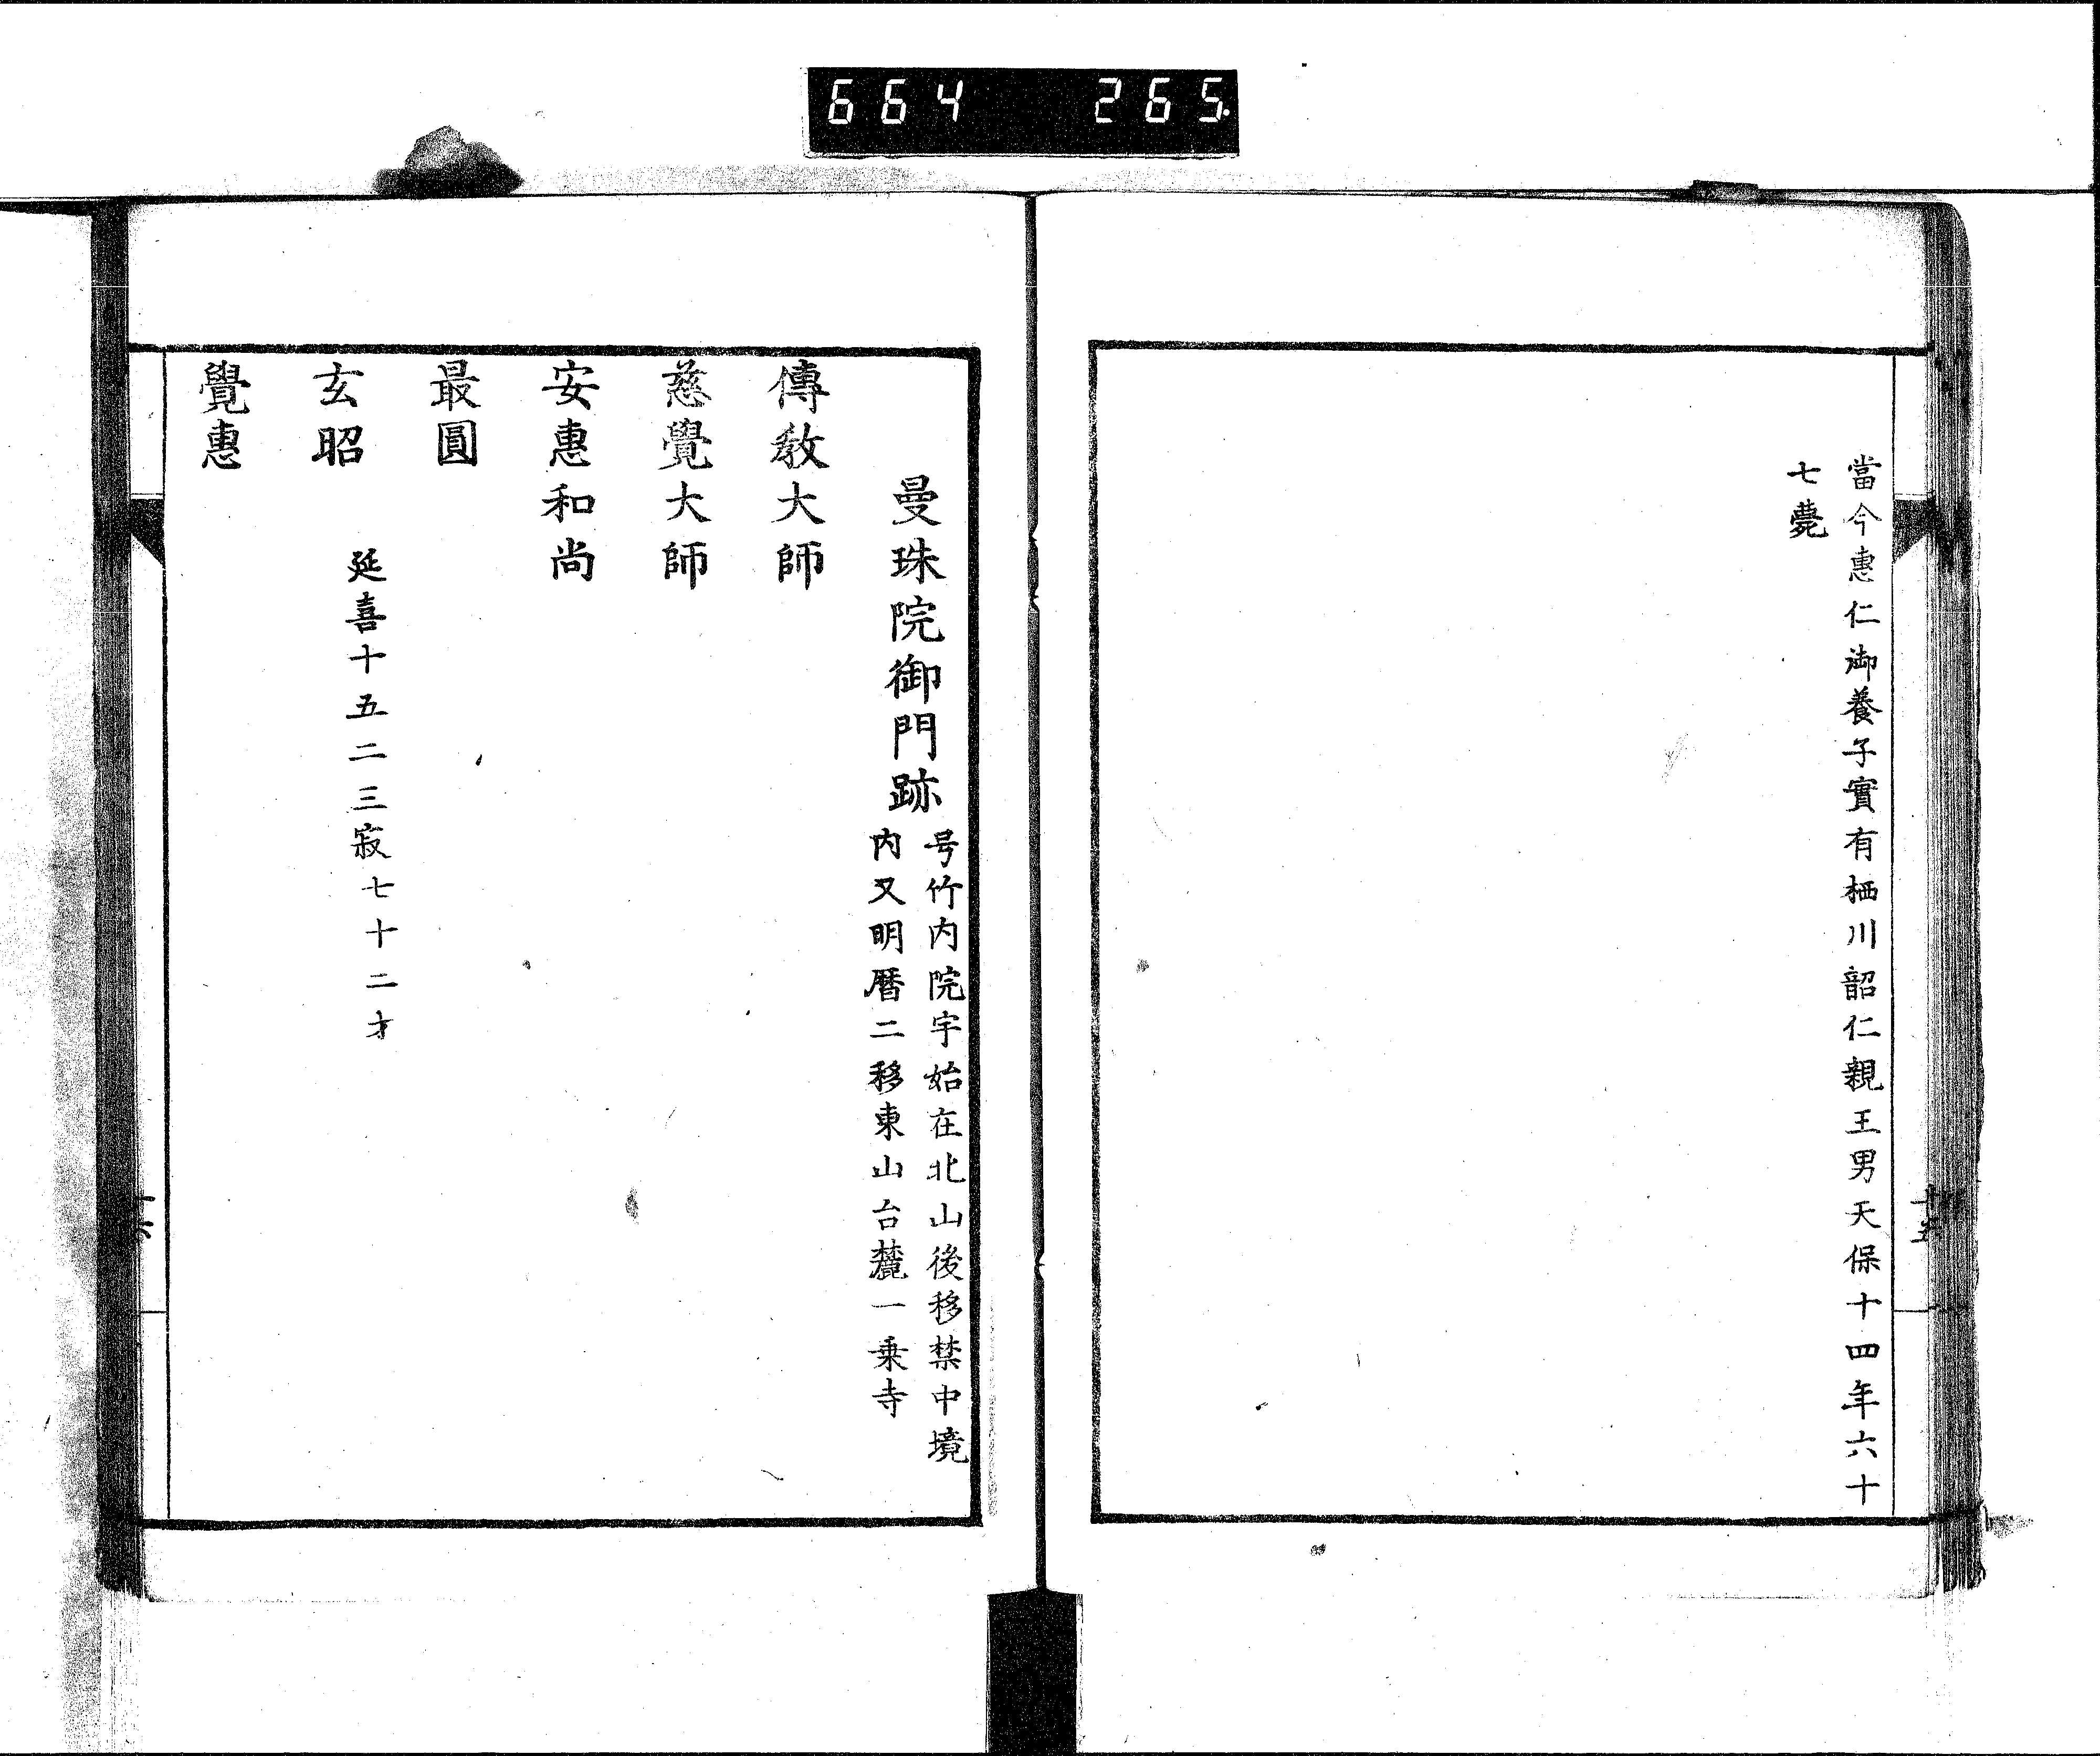 664 265.
當今惠仁御養子實有栖川韶仁親王男天保十四年六十
七薨
十五
曼珠院御門跡
号竹内院宇始在北山後移禁中境
内又明暦二移東山台麓一乗寺
傳敎大師
慈覺大師
安惠和尚
最圓
玄昭
延喜十五二三寂七十二才
覺惠
十六